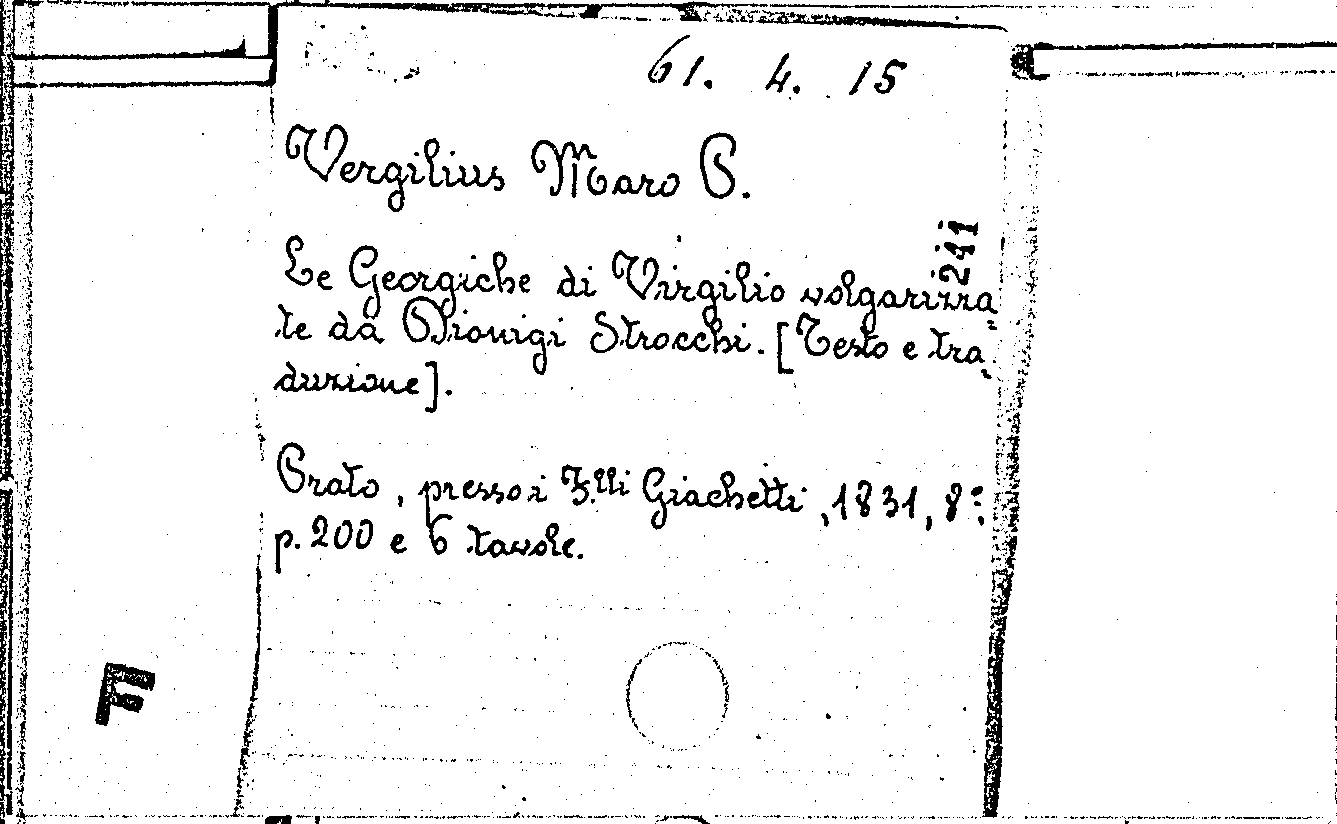 61. 4. 15
Vergilius Maro P.
241
Le Georgiche di Virgilio volgarizza-
te da Dionigi Strocchi. [Testo e tra-
duzione].
Prato, presso i F.lli Giachetti, 1831, 8º.
p. 200 e 6 tavole.
F